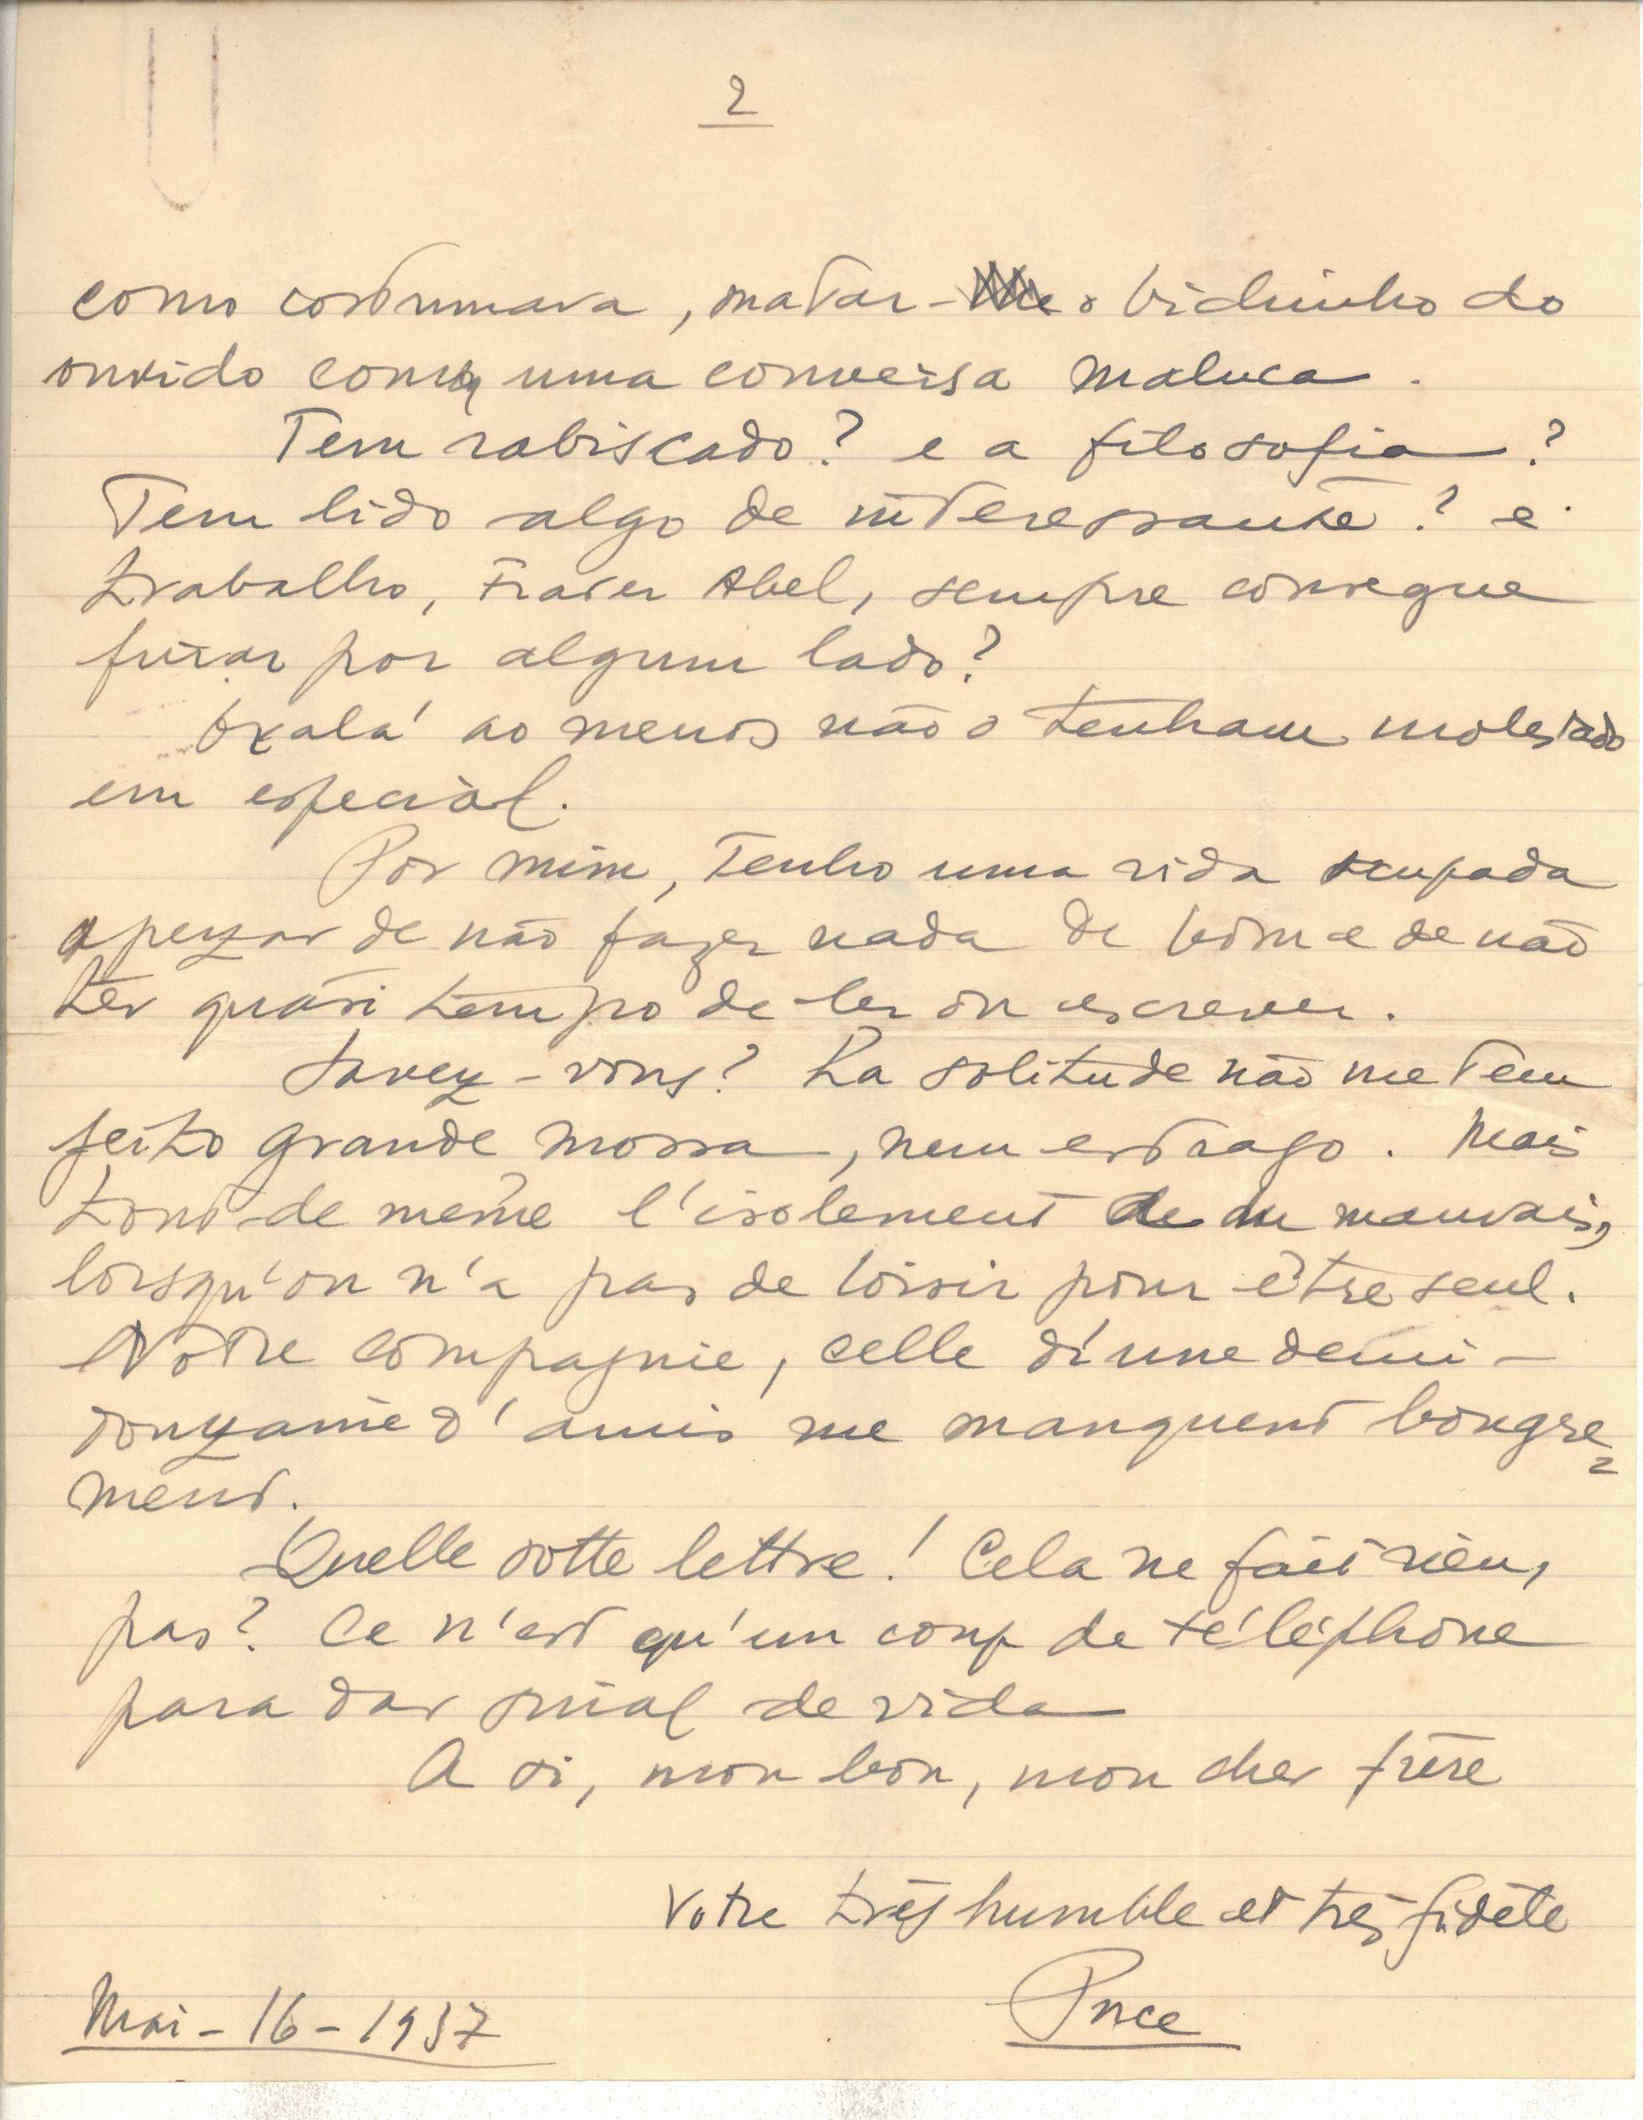 2
como costumava, matar- o bichinho do
ouvido com uma conversa maluca.
Tem rabiscado? e a filosofia?
Tem lido algo de interessante? e
trabalho, Frater Abel, sempre consegue
furar por algum lado?
Oxalá ao menos não o tenham molestado
em especial.
Por mim, tenho uma vida ocupada
apezar de não fazer nada de bom e de não
ter quási tempo de ler ou escrever.
Savez-vous? La solitude não me tem
feito grande mossa, nem estrago. Mais
tout de même l'isolement du mauvais,
lorsqu'on n'a pas de loisir pour être seul.
Votre compagnie, celle d'une demi-
douzaine d'amis me manquent bougre=
ment.
Quelle sotte lettre! Cela ne fait rien,
pas? Ce n'est qu'un coup de téléphone
para dar sinal de vida
A si, mon bon, mon cher frère
Votre très humble et très fidèle
Mai-16-1937